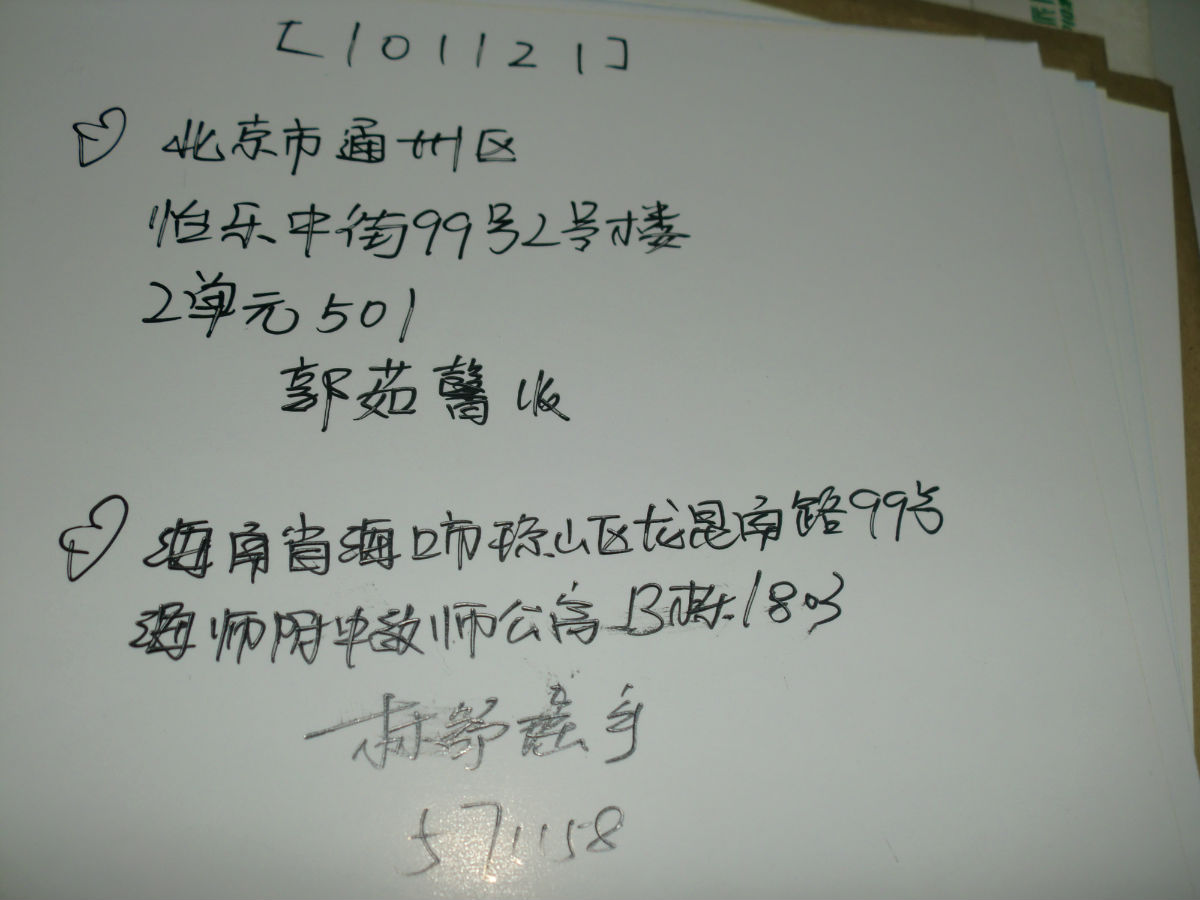 [101121]
北京市通州区
怡乐中街99号2号楼
2单元501
郭茹馨收
海南省海口市琼山区龙昆南路99号
海师附中教师公寓B栋1803
571158